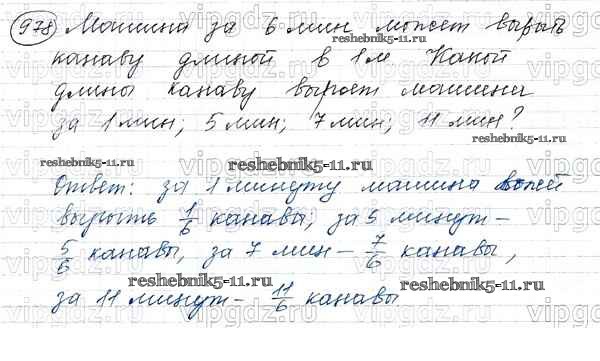 978 Машина за 6 мин может вырыть
reshebnik5-11.ru
канаву длиной в 1 м. Какой
длины канаву выроет машина
за 1 мин; 5 мин; 7 мин; 11 мин?
reshebnik5-11.ru
reshebnik5-11.ru
Ответ: за 1 минуту машина может
вырыть 1/6 канавы; за 5 минут –
reshebnik5-11.ru
5/6 канавы, за 7 мин – 7/6 канавы,
reshebnik5-11.ru
за 11 минут – 11/6 канавы
reshebnik5-11.ru
vipgdz.ru